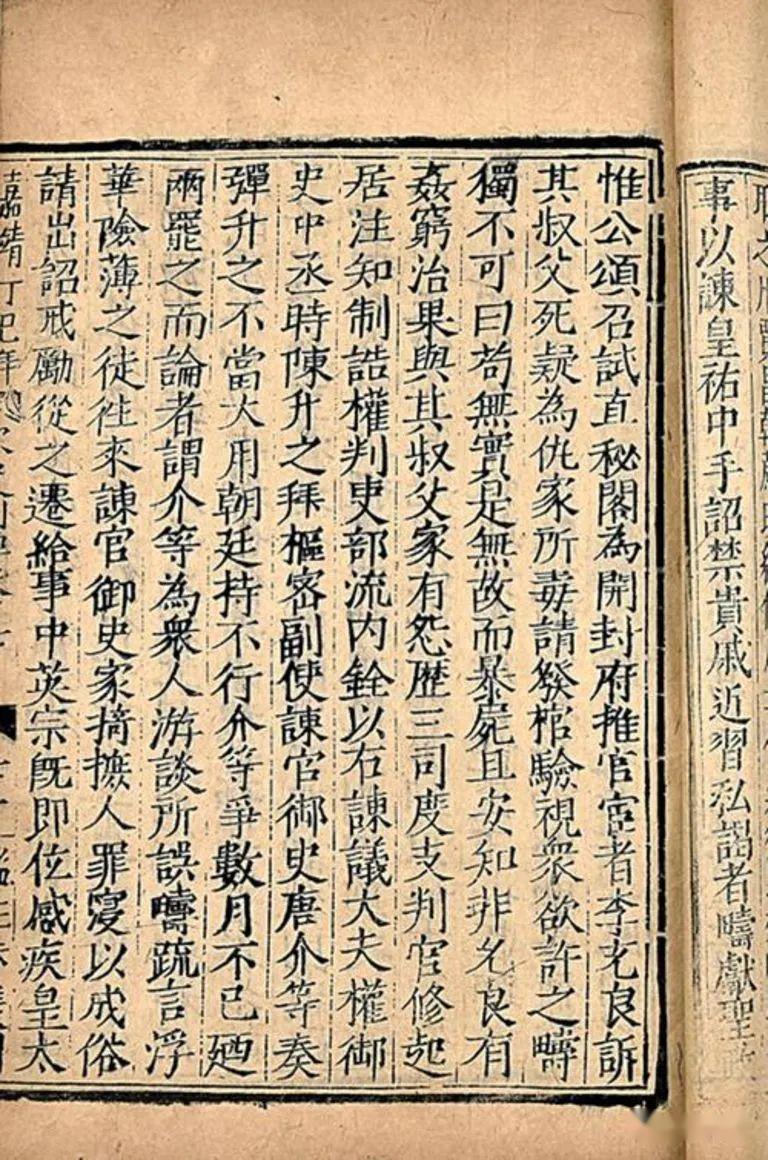 事以諫皇祐中手詔禁貴戚近習私謁者疇獻聖
惟公頌召試直秘閣為開封府推官宦者李允良訴
其叔父死疑為仇家所毒請發棺驗視衆欲許之疇
獨不可曰苟無實是無故而暴屍且安知非允良有
姦窮治果與其叔父家有怨歷三司度支判官修起
居注知制誥權判吏部流内銓以右諫議大夫權御
史中丞時陳升之拜樞密副使諫官御史唐介等奏
彈升之不當大用朝廷持不行介等爭數月不已廼
兩罷之而論者謂介等為衆人游談所誤疇疏言浮
華險薄之徒徃來諫官御史家掎摭人罪寖以成俗
請出詔戒勵從之遷給事中英宗既即位感疾皇太
嘉靖丁巳年